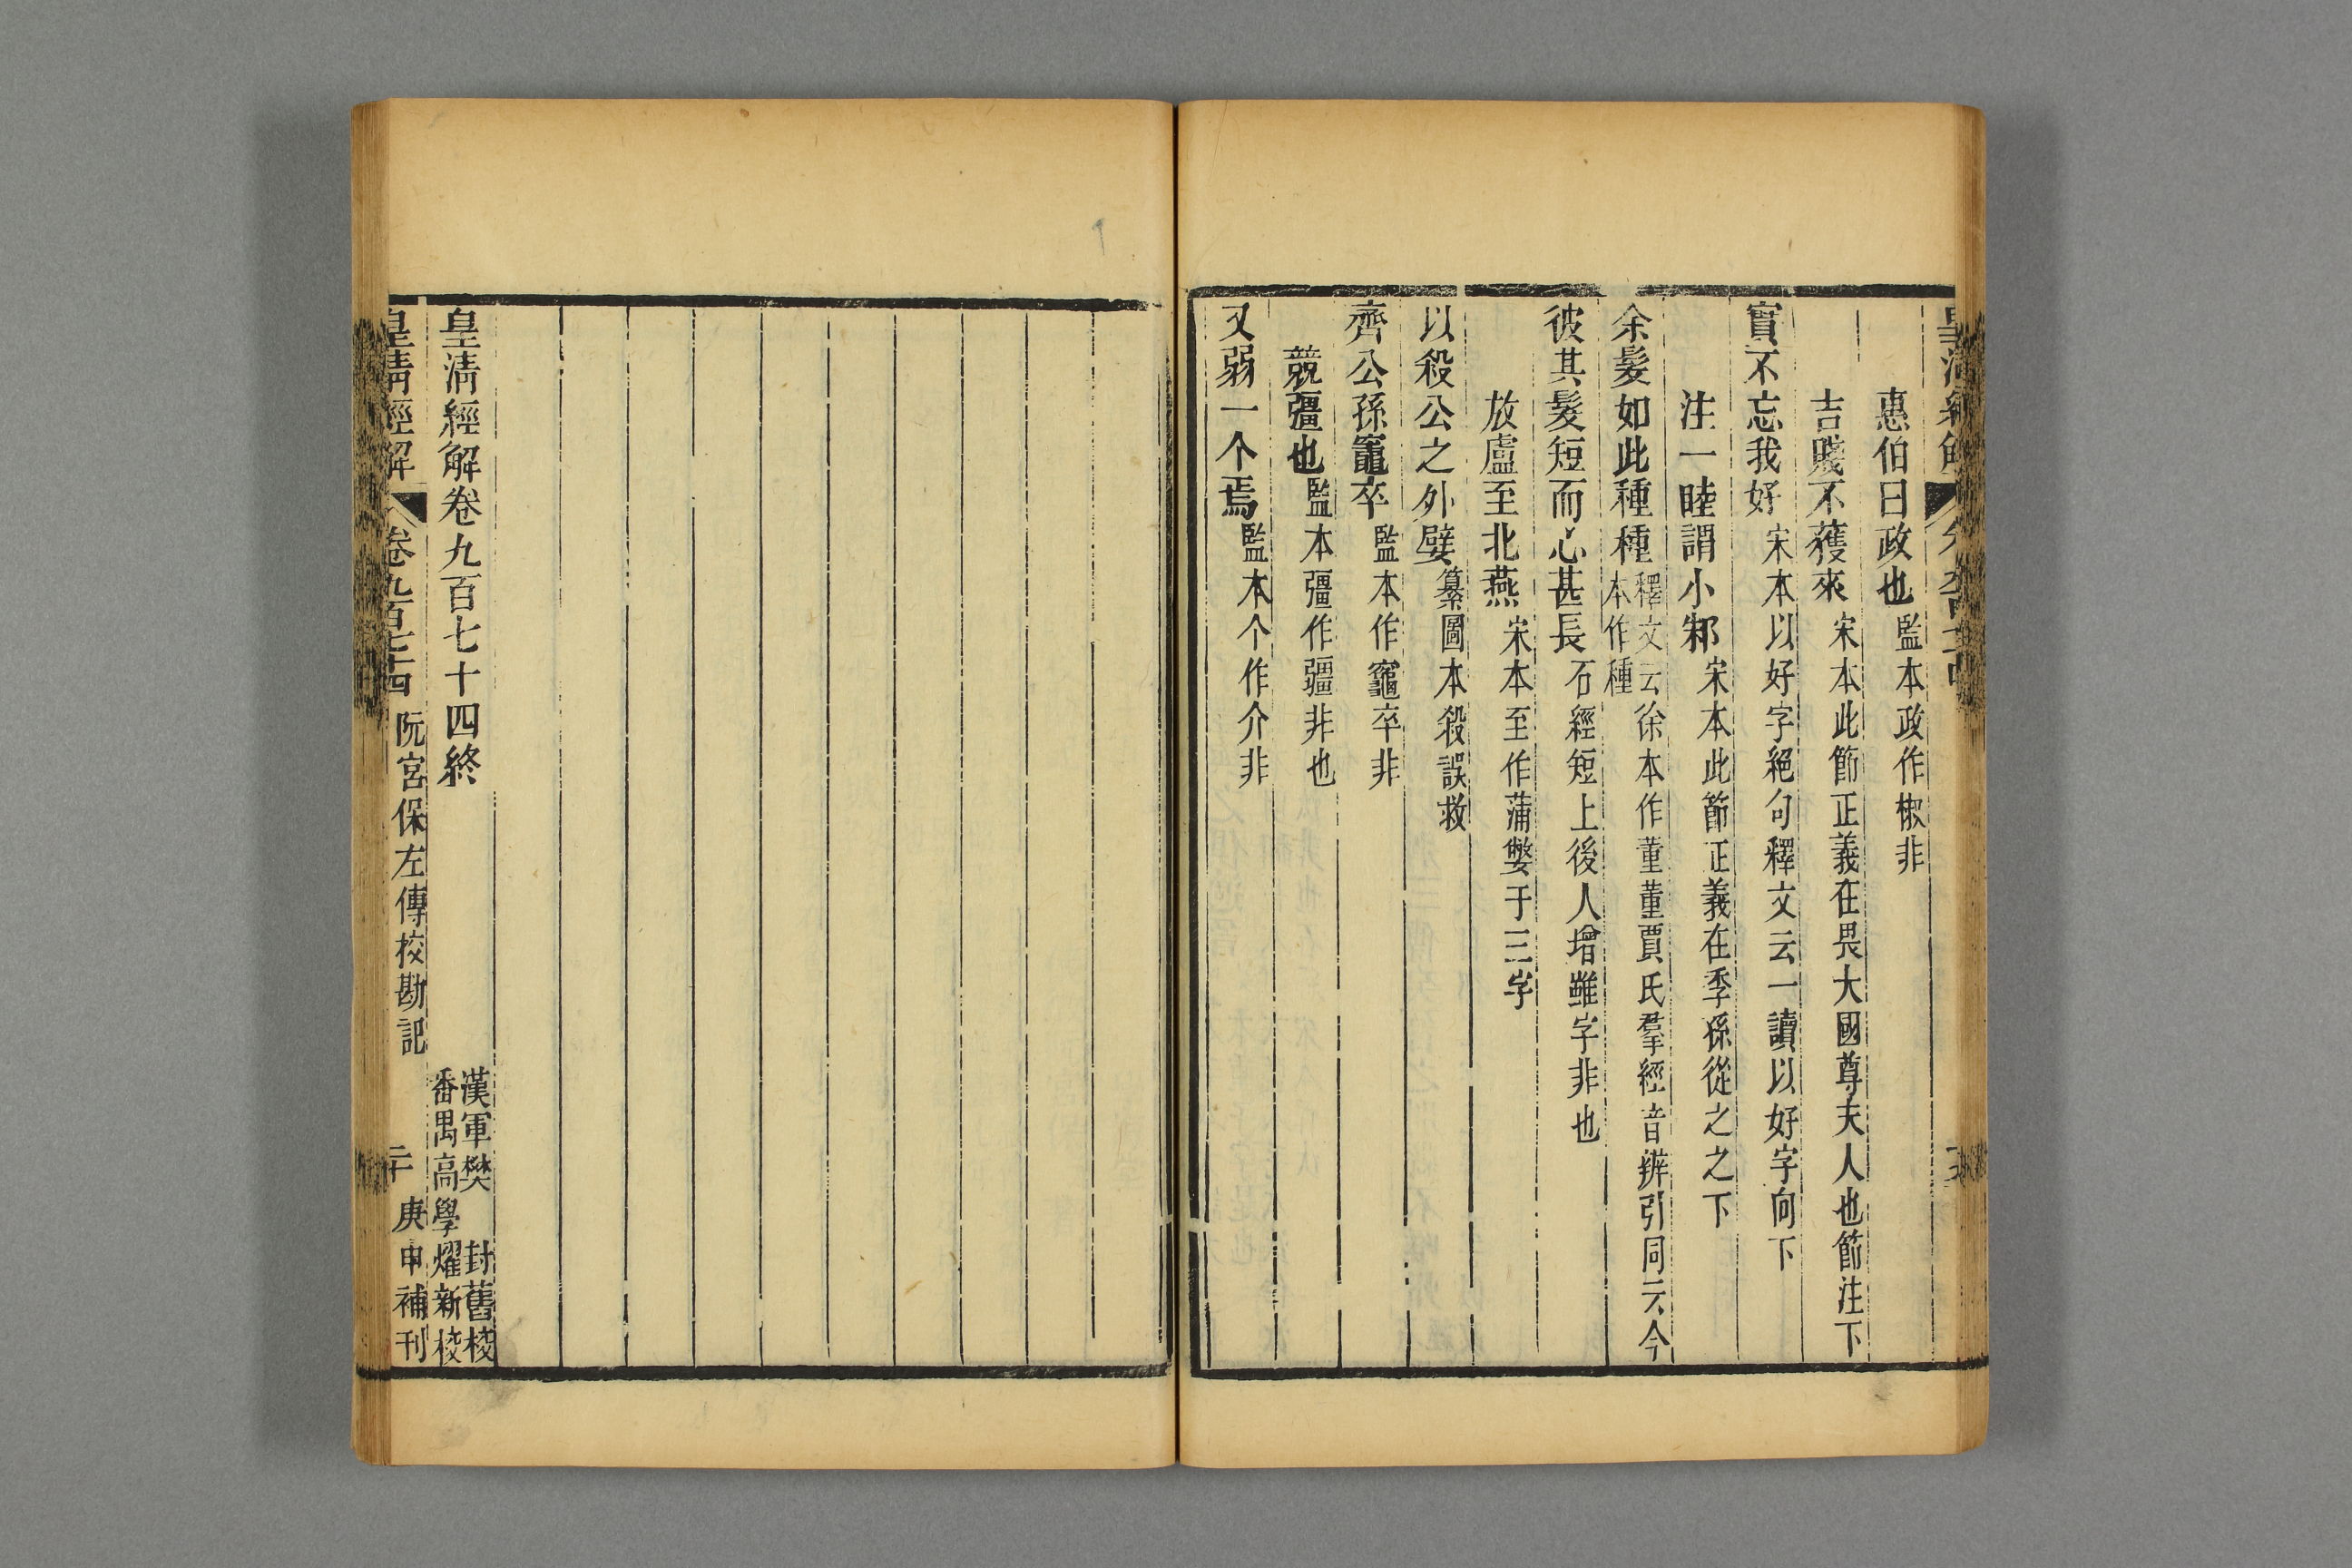 惠伯曰政也監本政作椒非
吉賤不獲來宋本此節正義在畏大國尊夫人也節注下
實不忘我好宋本以好字絕句釋文云一讀以好字向下
注一睦謂小邾宋本此節正義在季孫從之之下
余髮如此種種釋文云徐本作董董賈氏羣經音辨引同云今
本作種
彼其髮短而心甚長石經短上後人增雖字非也
放盧至北燕宋本至作蒲嫳于三字
以殺公之外嬖纂圖本殺誤救
齊公孫竈卒監本作竈卒非
競彊也監本彊作疆非也
又弱一个焉監本个作介非
皇清經解卷九百七十四終
漢軍樊封舊校
番禺高學燿新校
皇清經解
卷九百七十四
阮宮保左傳校勘記
二十
庚申補刊